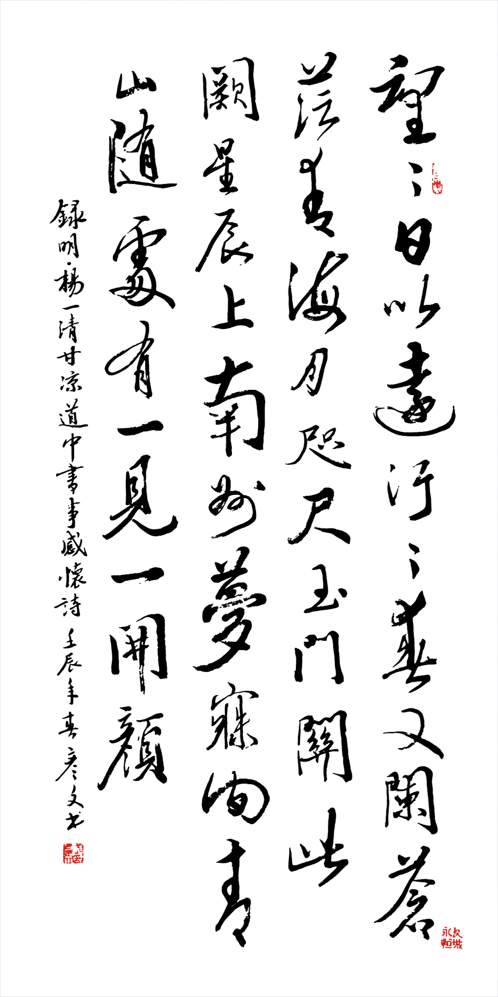 望〻日以遠行〻春又闌蒼
茫青海月咫尺玉門關北
闕星辰上南州夢寐間青
山隨處有一見一開顔
録明·楊一清甘凉道中書事感懷詩 壬辰年春彦文书